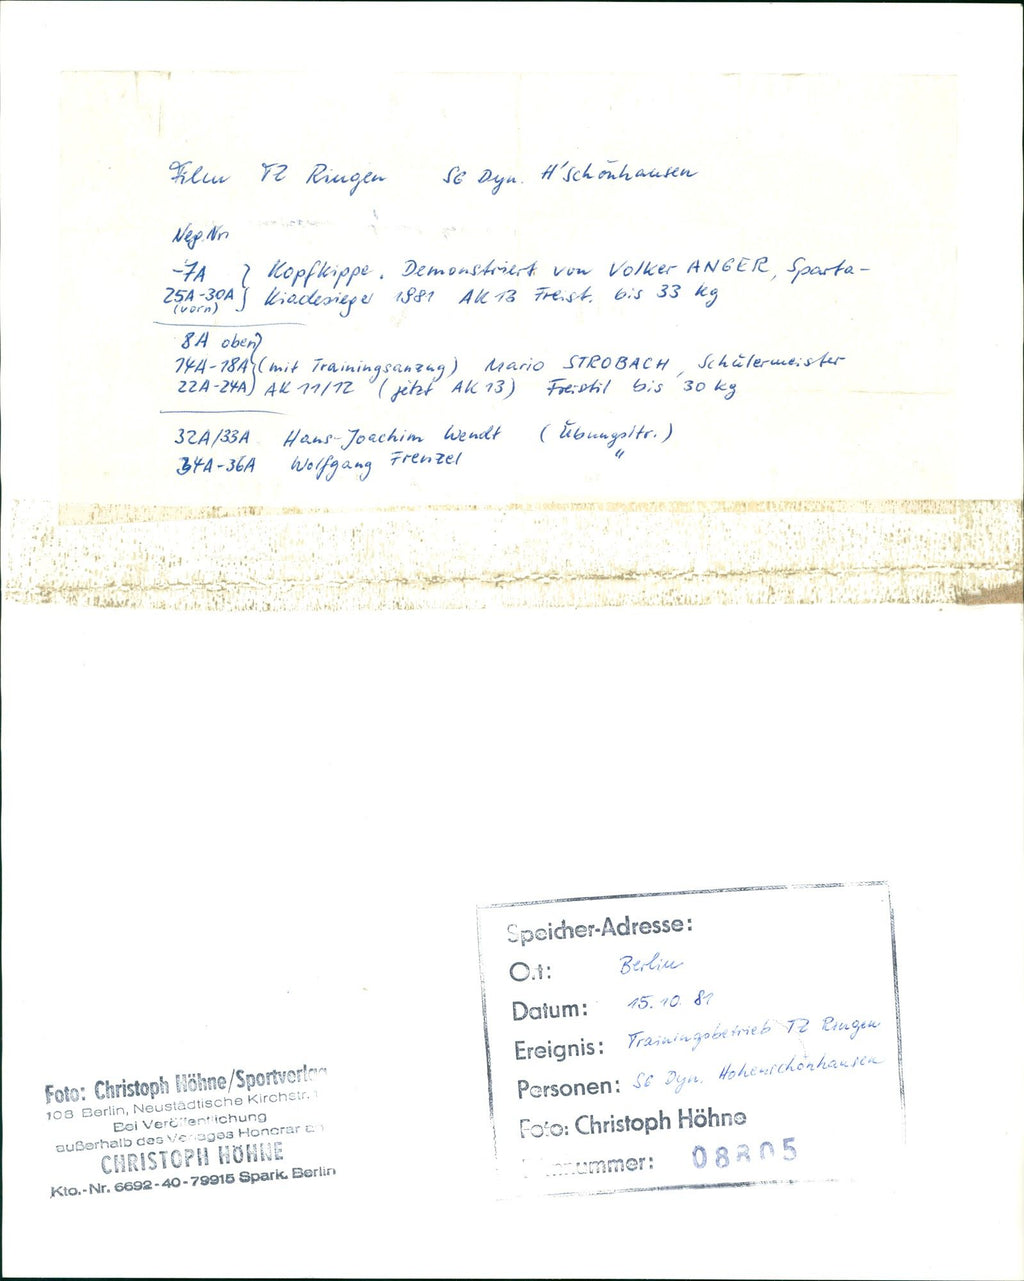 Film TZ Ringen SG Dyn. H'Schönhausen
Neg.Nr.
-7A } Kopfkippe. Demonstriert von Volker ANGER, Sparta-
25A-30A } kiadesieger 1981 AK 13 Freist. bis 33 kg
(vorn)
8A oben }
14A-18A } (mit Trainingsanzug) Mario STROBACH, Schülermeister
22A-24A } AK 11/12 (jetzt AK 13) Freistil bis 30 kg
32A/33A Hans-Joachim Wendt (Übungsltr.)
34A-36A Wolfgang Frenzel "
Speicher-Adresse:
Ort: Berlin
Datum: 15.10.81
Ereignis: Trainingsbetrieb TZ Ringen
Personen: SG Dyn. Hohenschönhausen
Foto: Christoph Höhne
nummer: 08805
Foto: Christoph Höhne/Sportverlag
108 Berlin, Neustädtische Kirchstr.
Bei Veröffentlichung
außerhalb des Verlages Honorar an
CHRISTOPH HÖHNE
Kto.-Nr. 6692-40-79915 Spark. Berlin